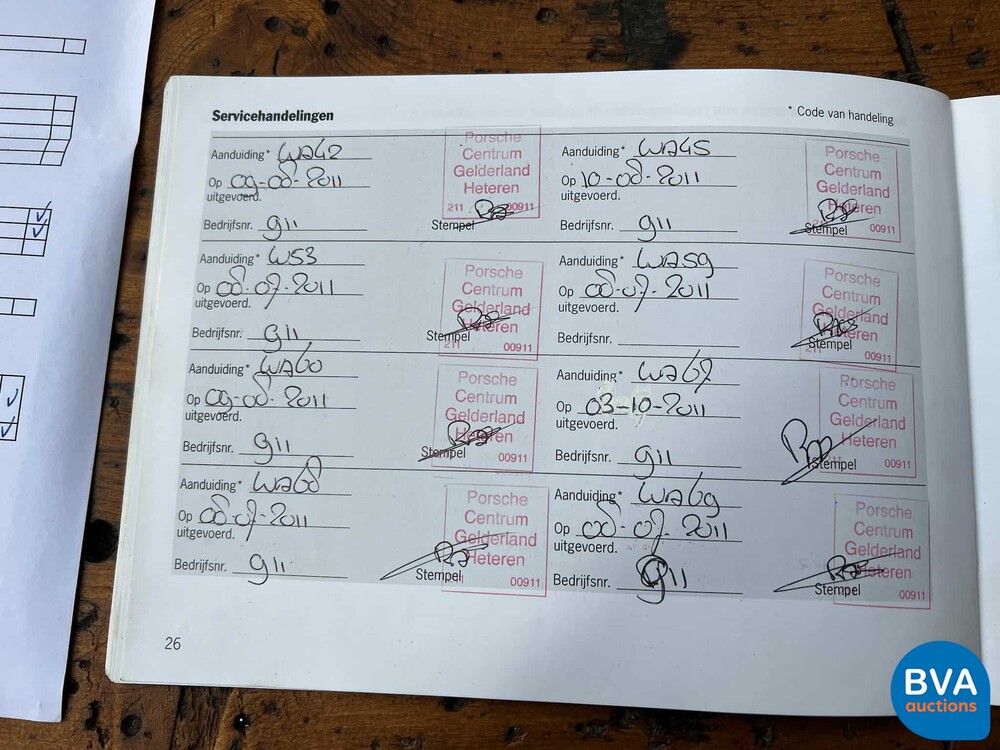 Servicehandelingen
* Code van handeling
Aanduiding* WA42
Op 09-08-2011
uitgevoerd.
Bedrijfsnr. 911
Stempel
Porsche
Centrum
Gelderland
Heteren
211 00911
Aanduiding* WA45
Op 10-08-2011
uitgevoerd.
Bedrijfsnr. 911
Stempel
Porsche
Centrum
Gelderland
Heteren
00911
Aanduiding* W53
Op 08-07-2011
uitgevoerd.
Bedrijfsnr. 911
Stempel
Porsche
Centrum
Gelderland
Heteren
211 00911
Aanduiding* WA59
Op 08-07-2011
uitgevoerd.
Bedrijfsnr.
Stempel
Porsche
Centrum
Gelderland
Heteren
211 00911
Aanduiding* WA60
Op 09-08-2011
uitgevoerd.
Bedrijfsnr. 911
Stempel
Porsche
Centrum
Gelderland
Heteren
00911
Aanduiding* WA67
Op 03-10-2011
uitgevoerd.
Bedrijfsnr. 911
Stempel
Porsche
Centrum
Gelderland
Heteren
00911
Aanduiding* WA68
Op 08-07-2011
uitgevoerd.
Bedrijfsnr. 911
Stempel
Porsche
Centrum
Gelderland
Heteren
00911
Aanduiding* WA69
Op 08-07-2011
uitgevoerd.
Bedrijfsnr. 911
Stempel
Porsche
Centrum
Gelderland
Heteren
00911
26
BVA
auctions